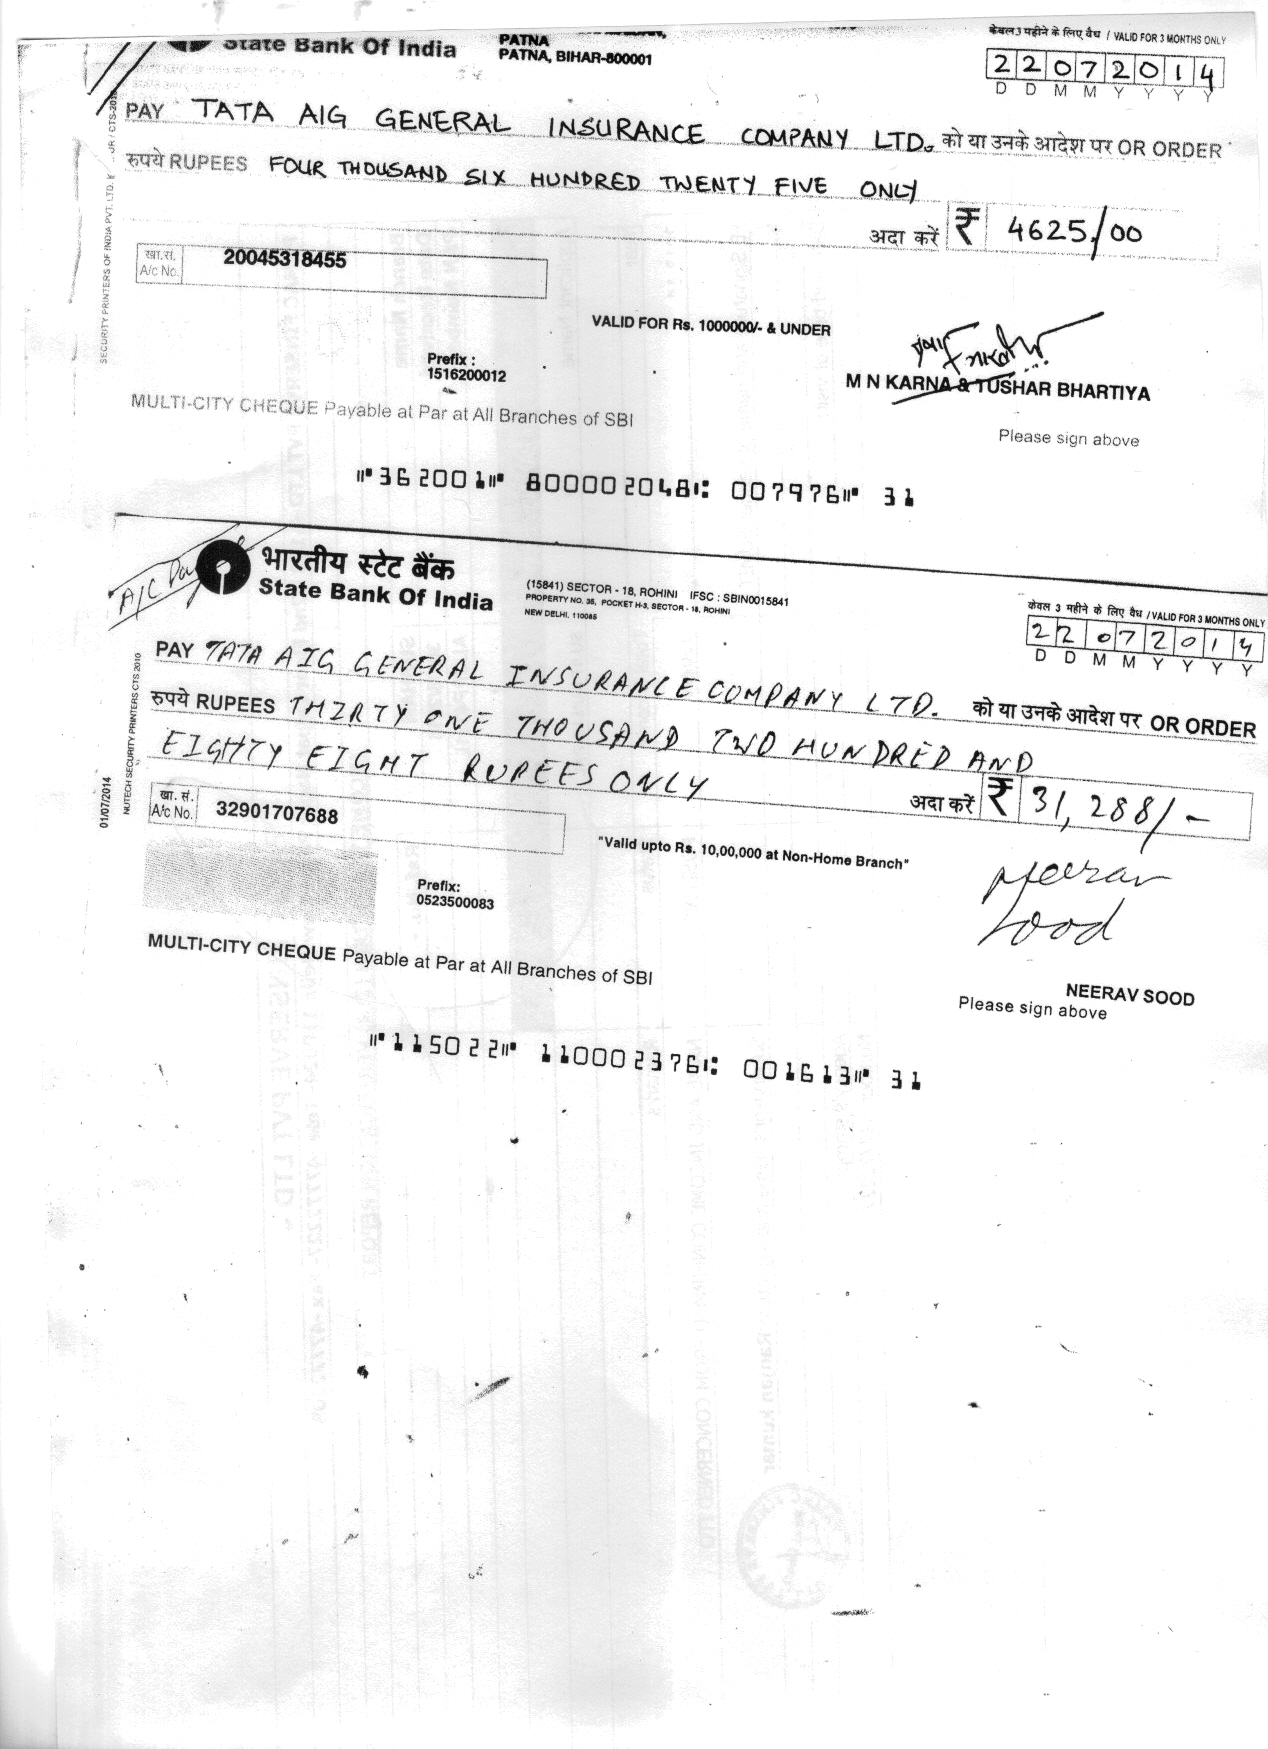 State Bank Of India
PATNA
PATNA, BIHAR-800001
केवल 3 महीने के लिए वैध / VALID FOR 3 MONTHS ONLY
2 2 0 7 2 0 1 4
D D M M Y Y Y Y
PAY TATA AIG GENERAL INSURANCE COMPANY LTD. को या उनके आदेश पर OR ORDER
रुपये RUPEES FOUR THOUSAND SIX HUNDRED TWENTY FIVE ONLY
अदा करें ₹ 4625/00
खा.सं.
A/c No. 20045318455
SECURITY PRINTERS OF INDIA PVT. LTD.
VALID FOR Rs. 1000000/- & UNDER
Prefix :
1516200012
M N KARNA & TUSHAR BHARTIYA
MULTI-CITY CHEQUE Payable at Par at All Branches of SBI
Please sign above
⑈362001⑈ 800002048⑆ 007976⑈ 31
A/C Pay
भारतीय स्टेट बैंक
State Bank Of India
(15841) SECTOR - 18, ROHINI IFSC : SBIN0015841
PROPERTY NO. 35, POCKET H-3, SECTOR - 18, ROHINI
NEW DELHI, 110085
केवल 3 महीने के लिए वैध / VALID FOR 3 MONTHS ONLY
2 2 0 7 2 0 1 4
D D M M Y Y Y Y
PAY TATA AIG GENERAL INSURANCE COMPANY LTD. को या उनके आदेश पर OR ORDER
रुपये RUPEES THIRTY ONE THOUSAND TWO HUNDRED AND
EIGHTY EIGHT RUPEES ONLY
अदा करें ₹ 31,288/-
खा. सं.
A/c No. 32901707688
01/07/2014
NUTECH SECURITY PRINTERS CTS 2010
"Valid upto Rs. 10,00,000 at Non-Home Branch"
Prefix:
0523500083
Neerav
Sood
MULTI-CITY CHEQUE Payable at Par at All Branches of SBI
NEERAV SOOD
Please sign above
⑈115022⑈ 110002376⑆ 001613⑈ 31